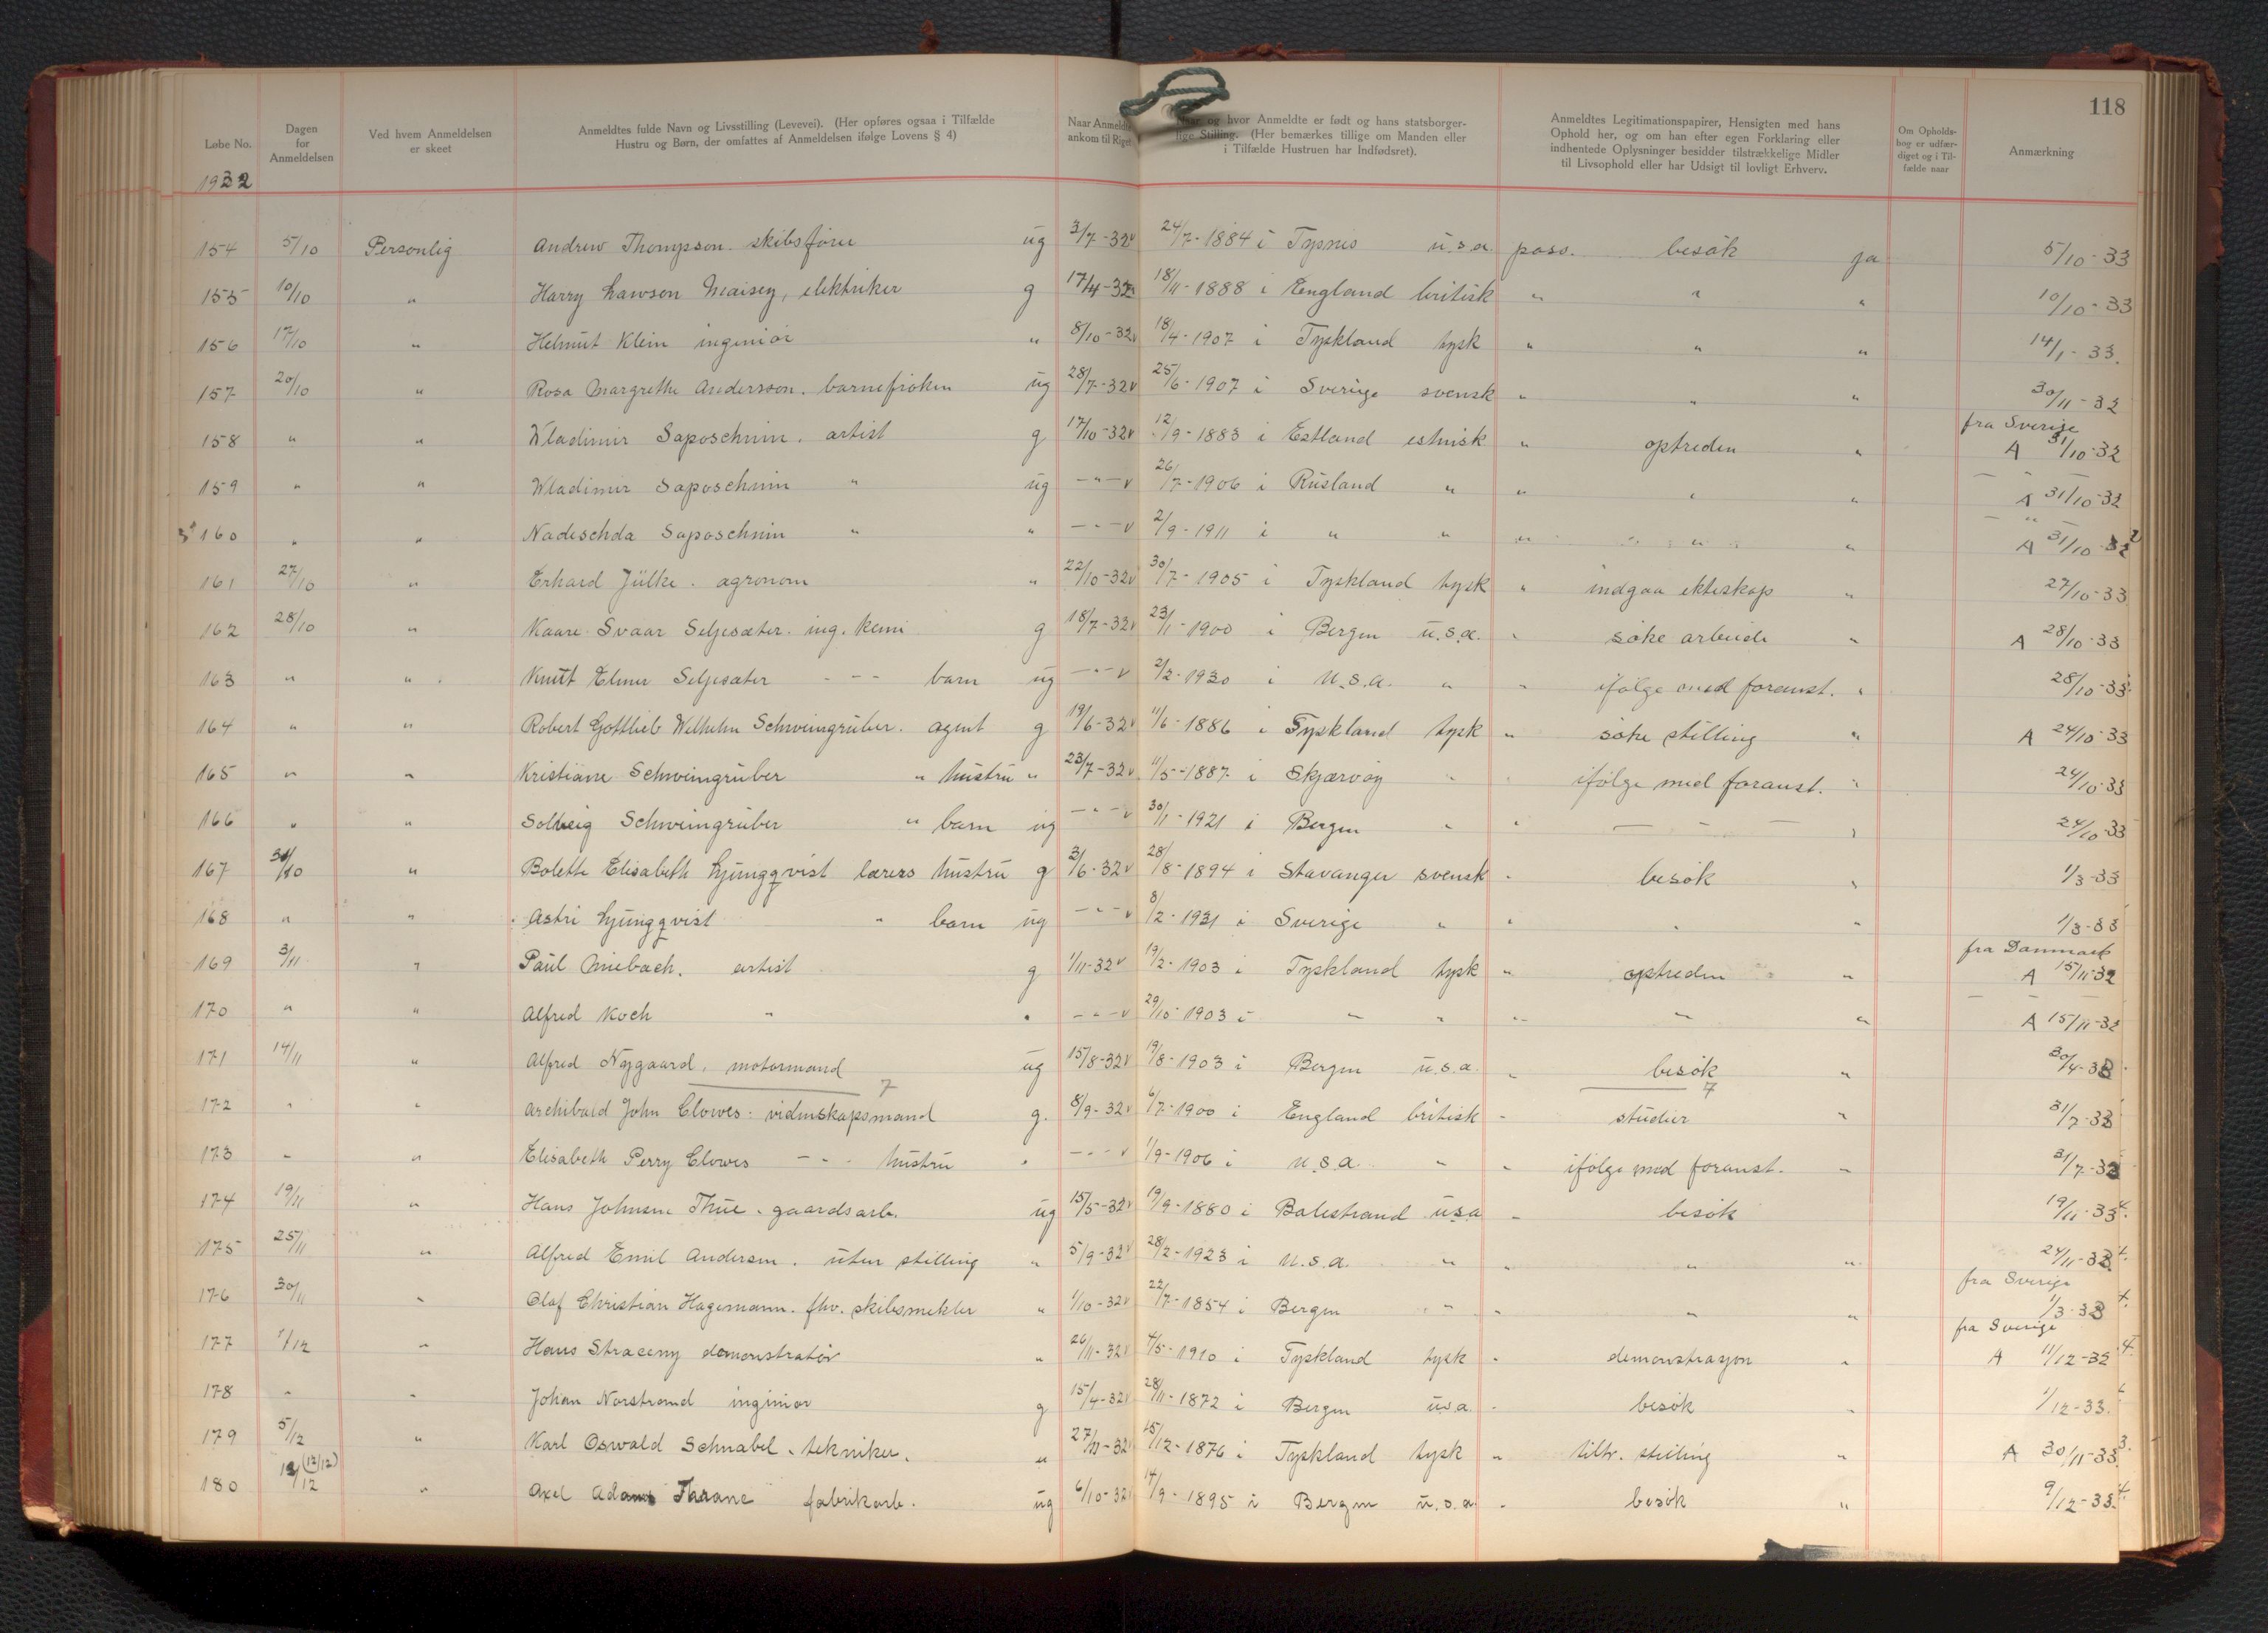 118
Løbe No.
Dagen for Anmeldelsen
Ved hvem Anmeldelsen er skeet
Anmeldtes fulde Navn og Livsstilling (Levevei). (Her opføres ogsaa i Tilfælde Hustru og Børn, der omfattes af Anmeldelsen ifølge Lovens § 4)
Naar Anmeldte ankom til Riget
og hvor Anmeldte er født og hans statsborgerlige Stilling. (Her bemærkes tillige om Manden eller i Tilfælde Hustruen har Indfødsret).
Anmeldtes Legitimationspapirer, Hensigten med hans Ophold her, og om han efter egen Forklaring eller indhentede Oplysninger besidder tilstrækkelige Midler til Livsophold eller har Udsigt til lovligt Erhverv.
Om Opholdsbog er udfærdiget og i Tilfælde naar
Anmærkning
1932
154 5/10 Personlig Andrew Thompson. skibsfører ug 3/7-32 24/7-1884 i Tysnes u.s.a. pass. besøk ja 5/10-33
155 10/10 " Harry Lawson Maisey, elektriker g 17/4-32 18/11-1888 i England britisk " " " 10/10-33
156 17/10 " Helmut Klein ingeniør " 8/10-32 18/4-1907 i Tyskland tysk " " " 14/1-33.
157 20/10 " Rosa Margrethe Andersson. barnefrøken ug 28/7-32 25/6-1907 i Sverige svensk " " " 30/11-32
fra Sverige
158 " " Wladimir Saposchnin. artist g 17/10-32 12/9-1883 i Estland estnisk " optreden " A 31/10-32
159 " " Wladimir Saposchnin " ug -"- 26/7-1906 i Rusland " " " " A 31/10-32
160 " " Nadeschda Saposchnin " " -"- 2/9-1911 i " " " " " A 31/10-32
161 27/10 " Erhard Jülke. agronom " 22/10-32 30/7-1905 i Tyskland tysk " indgaa ekteskap " 27/10-33
162 28/10 " Kaare Svaar Seljesæter. ing. kemi g 18/7-32 23/1-1900 i Bergen u.s.a. " søke arbeide " A 28/10-33
163 " " Knut Elmer Seljesæter - - - barn ug -"- 2/2-1930 i U.S.A. " " ifølge med foranst. " 28/10-33
164 " " Robert Gottlieb Wilhelm Schweingruber. agent g 19/6-32 11/6-1886 i Tyskland tysk " søke stilling " A 24/10-33
165 " " Kristiane Schweingruber " hustru " 23/7-32 11/5-1887 i Skjærvøy " " ifølge med foranst. " 24/10-33
166 " " Solveig Schweingruber " barn ug -"- 30/1-1921 i Bergen " " - - - " 24/10-33
167 /10 " Bolette Elisabeth Ljungqvist lærers hustru g 3/6-32 28/8-1894 i Stavanger svensk " besøk " 1/3-33
168 " " Astri Ljungqvist " barn ug -"- 8/2-1931 i Sverige " " " " 1/3-33
fra Danmark
169 3/11 " Paul Miebach. artist g 1/11-32 19/2-1903 i Tyskland tysk " optreden " A 15/11-32
170 " " Alfred Koch " " -"- 29/10-1903 i " " " " " A 15/11-32
171 14/11 " Alfred Nygaard, motormand ug 15/8-32 19/8-1903 i Bergen u.s.a. " besøk " 30/4-33
172 " " Archibald John Clowes. videnskapsmand g. 8/9-32 6/7-1900 i England britisk " studier " 31/7-33
173 " " Elisabeth Perry Clowes - - - hustru " -"- 1/9-1906 i U.S.A. " " ifølge med foranst. " 31/7-33
174 19/11 " Hans Johnsen Thue. gaardsarb. ug 15/5-32 19/9-1880 i Balestrand u.s.a " besøk 19/11-33
175 25/11 " Alfred Emil Andersen. uten stilling " 5/9-32 28/2-1923 i U.S.A. " " " " 24/11-33
fra Sverige
176 30/11 " Olaf Christian Hagemann. fhv. skibsmekler " 1/10-32 22/7-1854 i Bergen " " " " 1/3-33
fra Sverige
177 1/12 " Hans Straceny demonstratør " 26/11-32 4/5-1910 i Tyskland tysk " demonstrasjon " A 11/12-32
178 " " Johan Norstrand ingeniør g 15/4-32 28/11-1872 i Bergen u.s.a. " besøk " 1/12-33.
179 5/12 " Karl Oswald Schnabel. tekniker. " 27/11-32 15/12-1876 i Tyskland tysk " tiltr. stilling " A 30/11-33
180 /12 (12/12) " Axel Adam Thrane fabrikarb. ug 6/10-32 14/9-1895 i Bergen u.s.a. " besøk " 9/12-33.